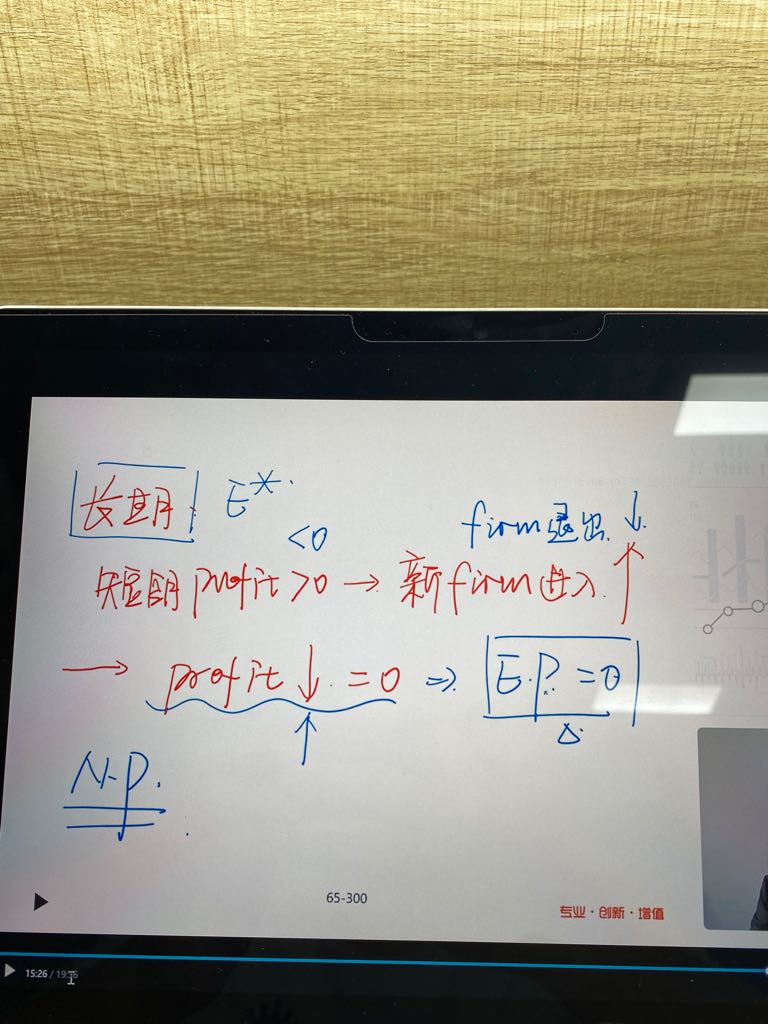 长期 E*.
<0 firm退出 ↓.
短期 profit >0 → 新firm进入 ↑
→ profit ↓. =0 ⇒ E.P. =0
↑ Δ.
N.P.
65-300
专业·创新·增值
15:26 / 19:56